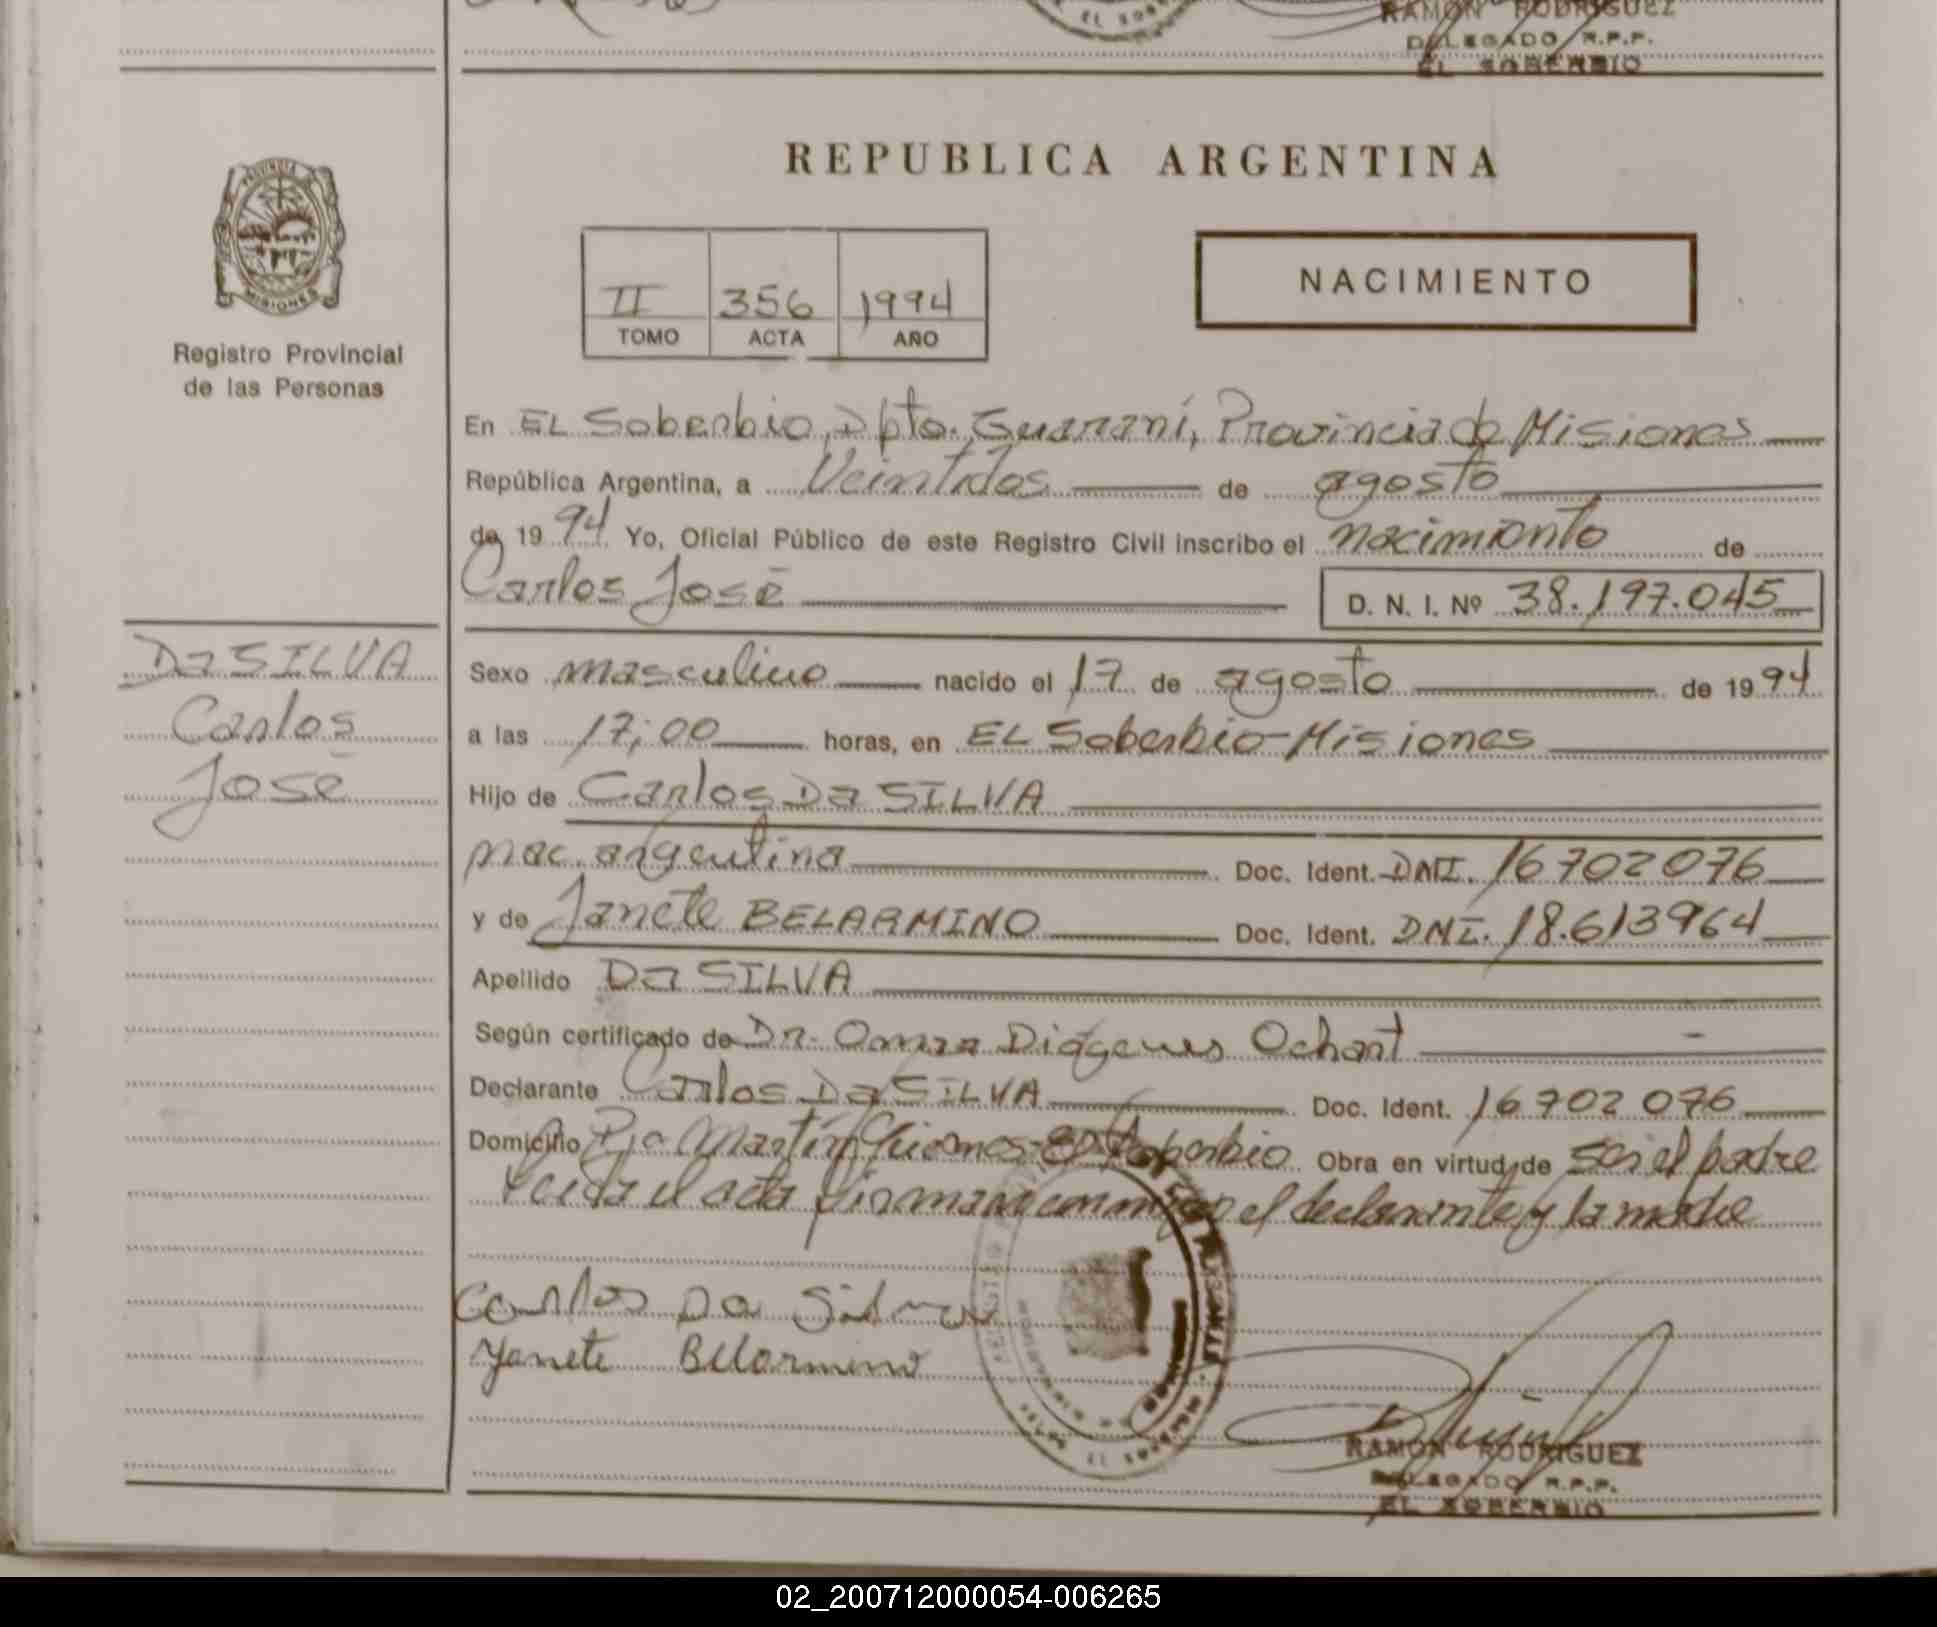 RAMON RODRIGUEZ
DELEGADO R.P.P.
EL SOBERBIO
REPUBLICA ARGENTINA
PROVINCIA
MISIONES
Registro Provincial
de las Personas
II 356 1994
TOMO ACTA AÑO
NACIMIENTO
En EL Soberbio, Dpto. Guaraní, Provincia de Misiones
República Argentina, a Veintidos de agosto
de 1994 Yo, Oficial Público de este Registro Civil inscribo el nacimiento de
Carlos José D. N. I. Nº 38.197.045
Da SILVA
Carlos
José
Sexo masculino nacido el 17 de agosto de 1994
a las 17;00 horas, en EL Soberbio-Misiones
Hijo de Carlos Da SILVA
nac. argentina Doc. Ident. DNI. 16702076
y de Janete BELARMINO Doc. Ident. DNI. 18.613964
Apellido Da SILVA
Según certificado de Dr. Diógenes Ochart
Declarante Carlos Da SILVA Doc. Ident. 16702076
Domicilio Martín Soberbio Obra en virtud de ser el padre
el acta firman conmigo el declarante y la madre
Carlos Da Silva
Yanete Belarmino
RAMON RODRIGUEZ
DELEGADO R.P.P.
EL SOBERBIO
02_200712000054-006265